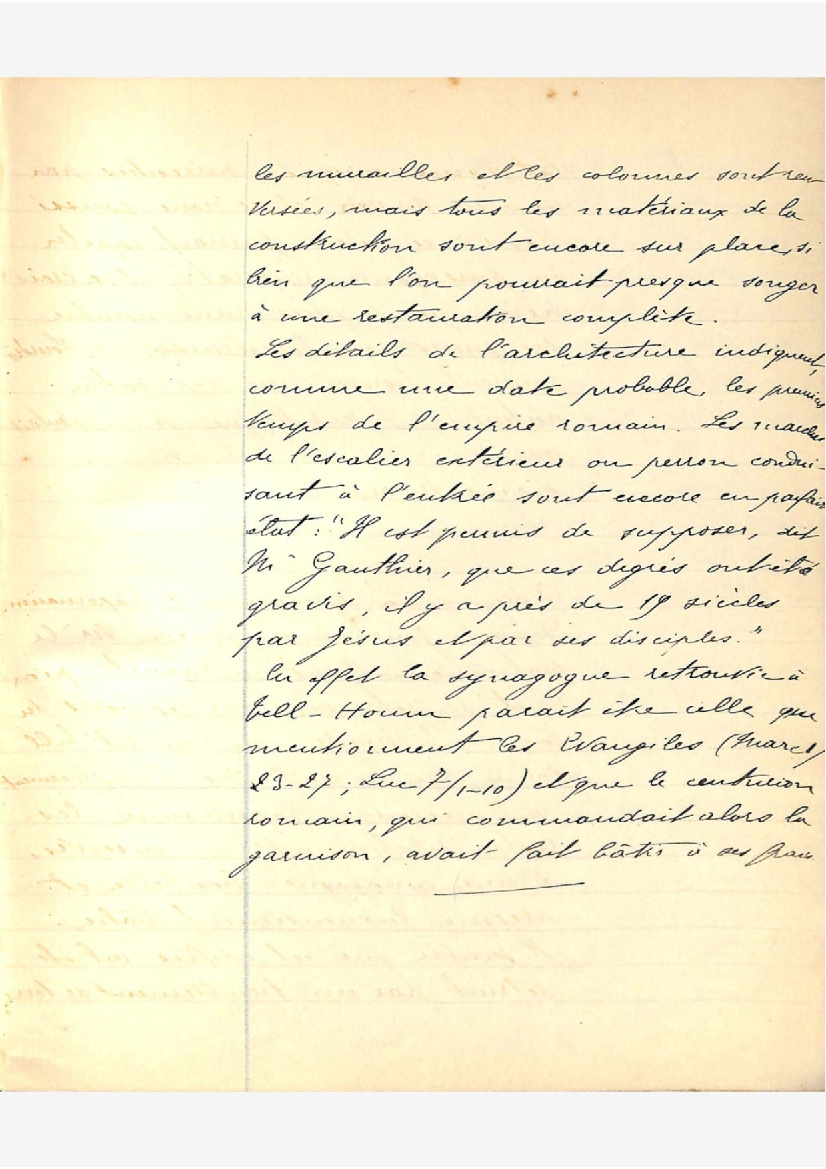 les murailles et les colonnes sont ren
versées, mais tous les matériaux de la
construction sont encore sur place, si
bien que l'on pourrait presque songer
à une restauration complète.
Les détails de l'architecture indiquent,
comme une date probable, les premiers
temps de l'empire romain. Les marches
de l'escalier extérieur ou perron condui-
sant à l'entrée sont encore en parfait
état : "Il est permis de supposer, dit
Mr Gauthier, que ces degrés ont été
gravis, il y a près de 19 siècles
par Jésus et par ses disciples."
En effet la synagogue retrouvée à
Tell-Houm parait être celle que
mentionnent les Evangiles (Marc 1/
23-27 ; Luc 7/1-10) et que le centurion
romain, qui commandait alors la
garnison, avait fait bâtir à ses frais